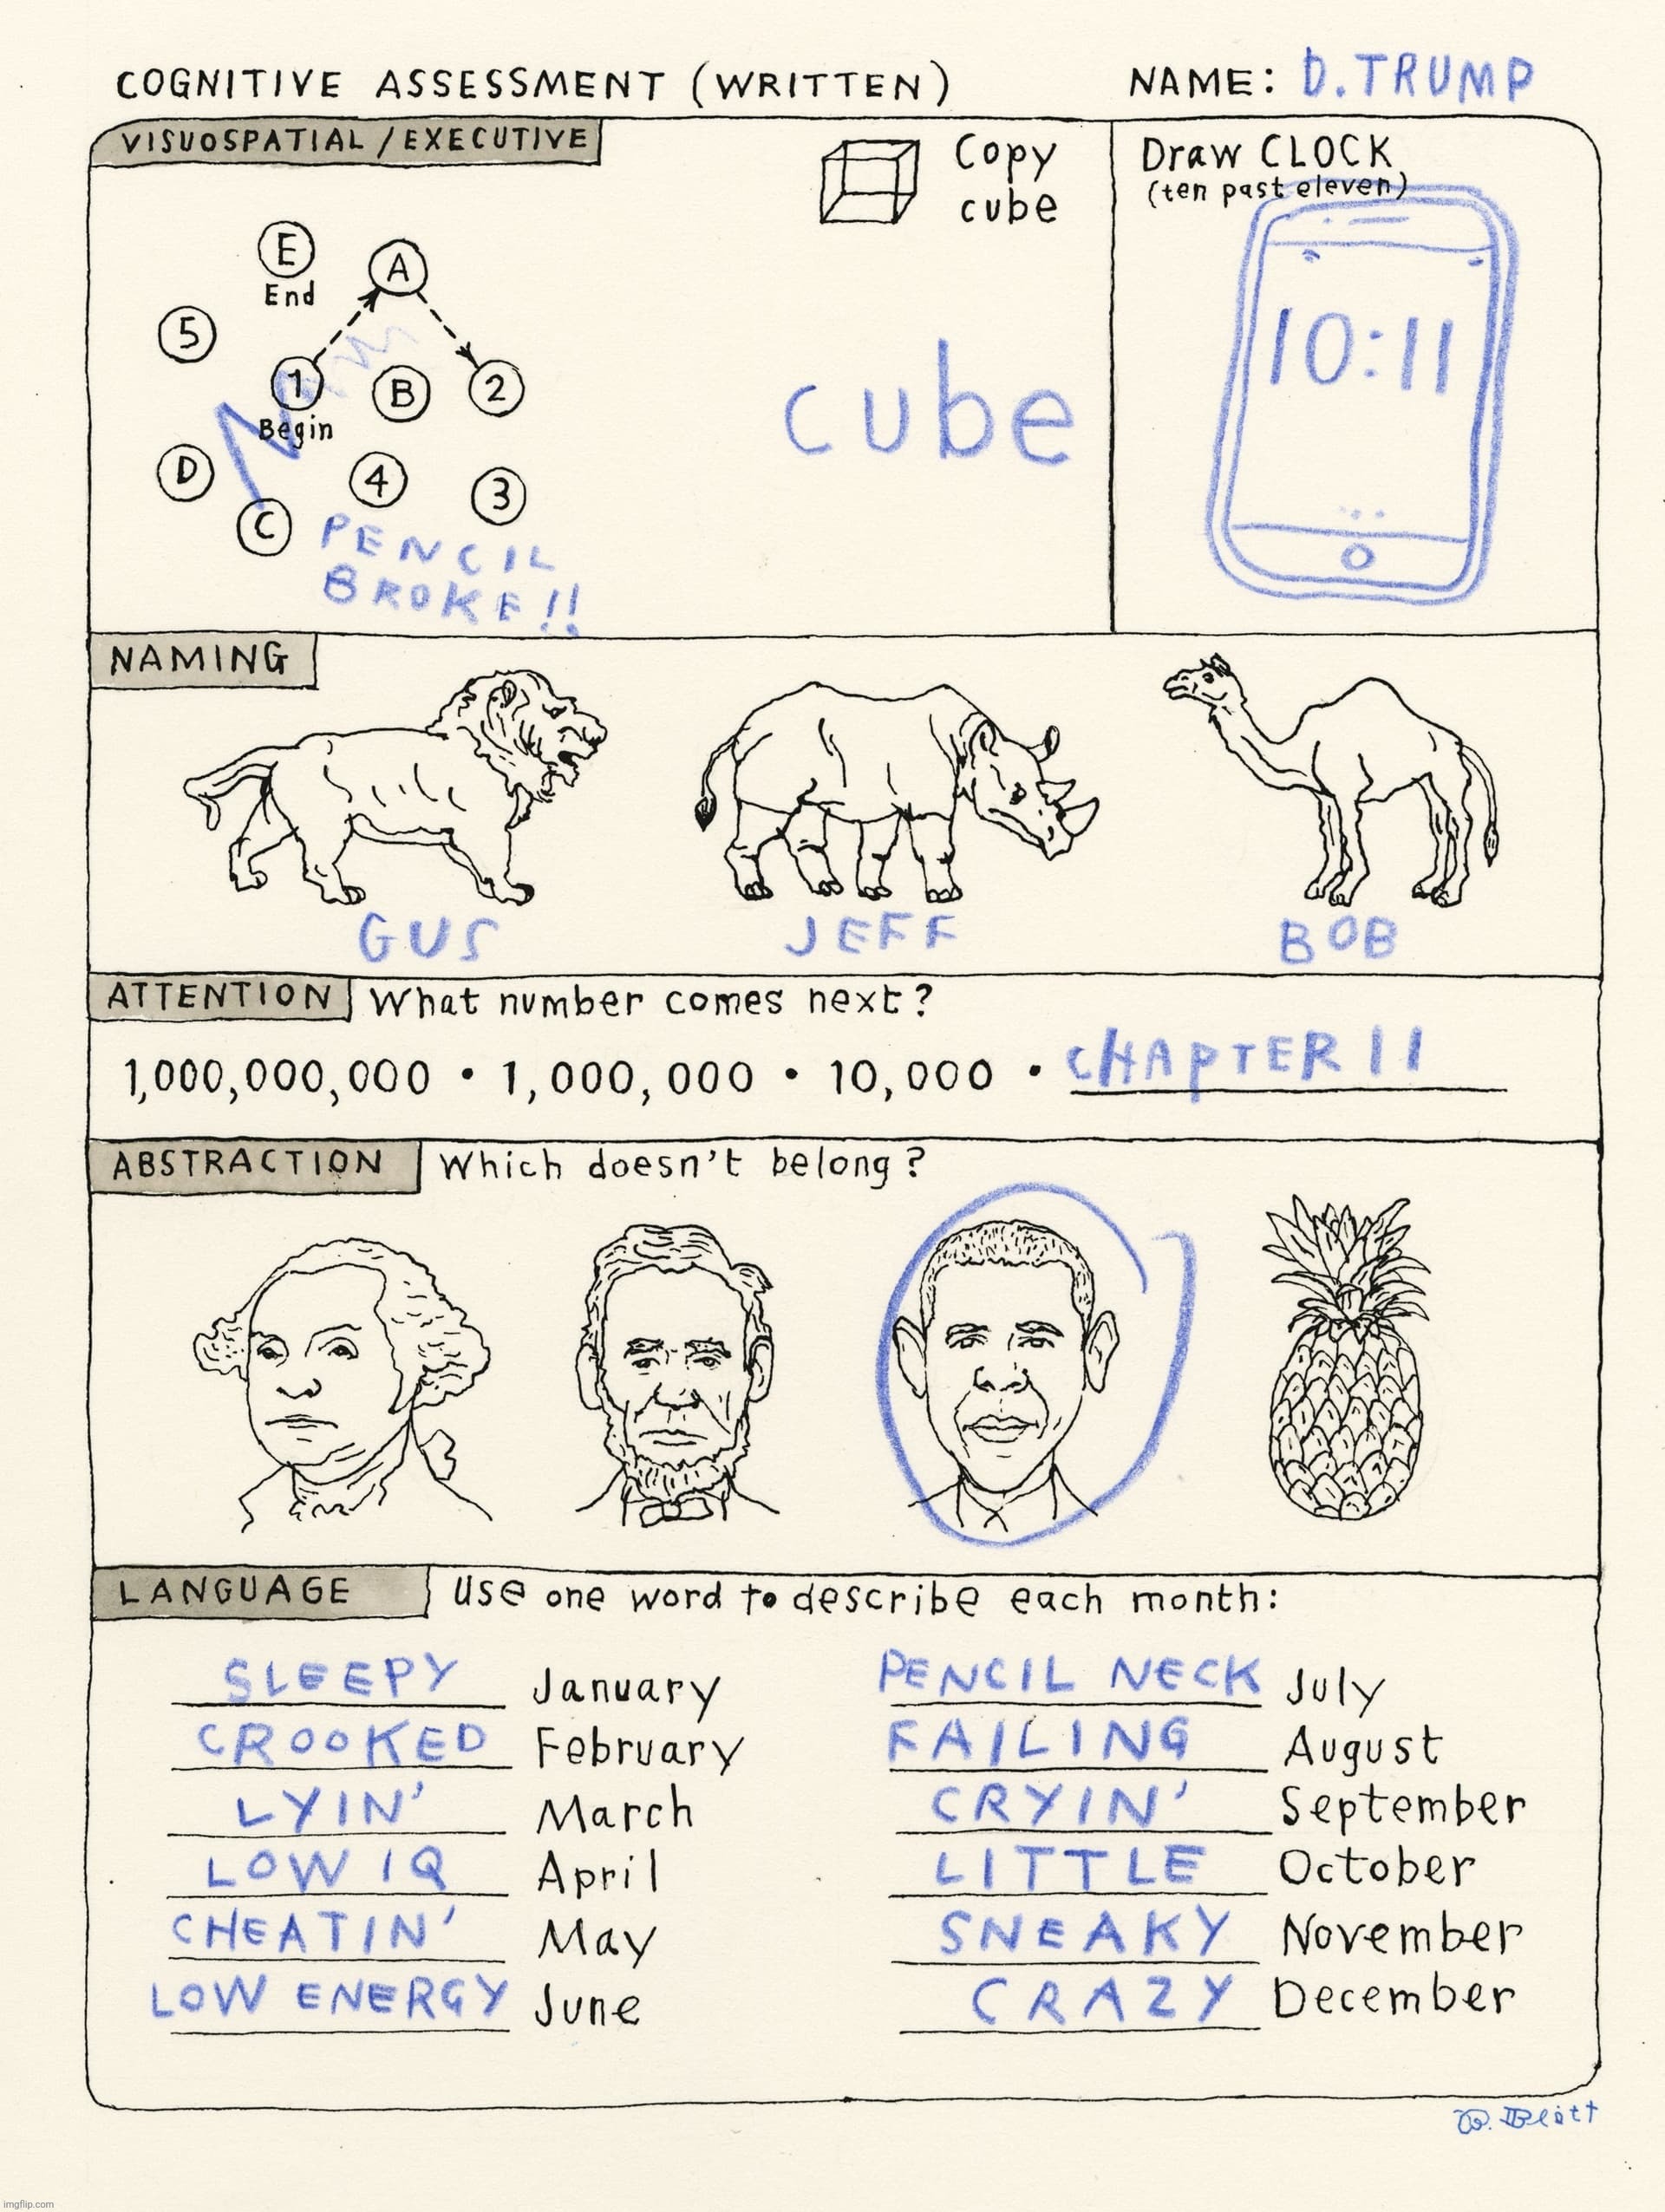 COGNITIVE ASSESSMENT (WRITTEN)
NAME: D.TRUMP
VISUOSPATIAL / EXECUTIVE
Copy
cube
Draw CLOCK
(ten past eleven)
E
End
A
5
1
Begin
B
2
D
4
3
C
PENCIL
BROKE!!
cube
10:11
NAMING
GUS
JEFF
BOB
ATTENTION What number comes next?
1,000,000,000 • 1,000,000 • 10,000 • CHAPTER 11
ABSTRACTION Which doesn't belong?
LANGUAGE use one word to describe each month:
SLEEPY January
CROOKED February
LYIN' March
LOW IQ April
CHEATIN' May
LOW ENERGY June
PENCIL NECK July
FAILING August
CRYIN' September
LITTLE October
SNEAKY November
CRAZY December
imgflip.com